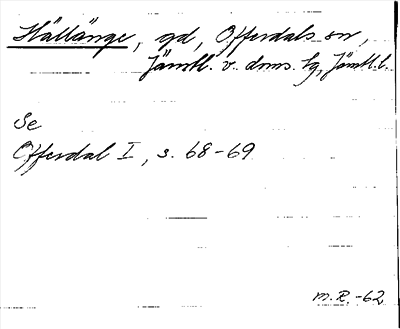 Hällänge, gd, Offerdals sn,
Jämtl. v. doms. hg, Jämtl. l.
Se
Offerdal I, s. 68-69
M.R. -62